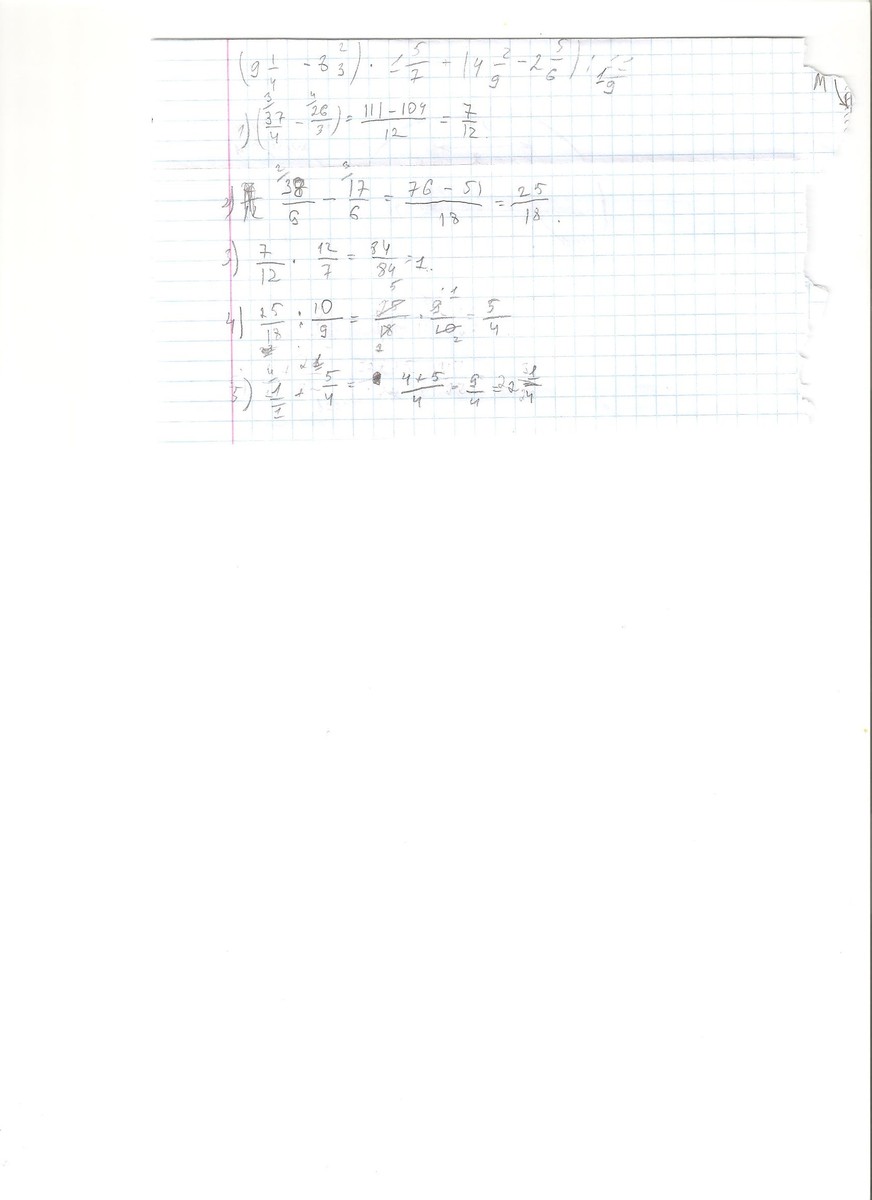 (9 1/4 - 8 2/3) · 1 5/7 + (4 2/9 - 2 5/6) : 1 1/9
1) (37/4 - 26/3) = 111 - 104/12 = 7/12
2) 38/9 - 17/6 = 76 - 51/18 = 25/18.
3) 7/12 · 12/7 = 84/84 = 1.
4) 25/18 : 10/9 = 25/18 · 9/10 = 5/4
5) 1/1 + 5/4 = 4+5/4 = 9/4 = 2 1/4